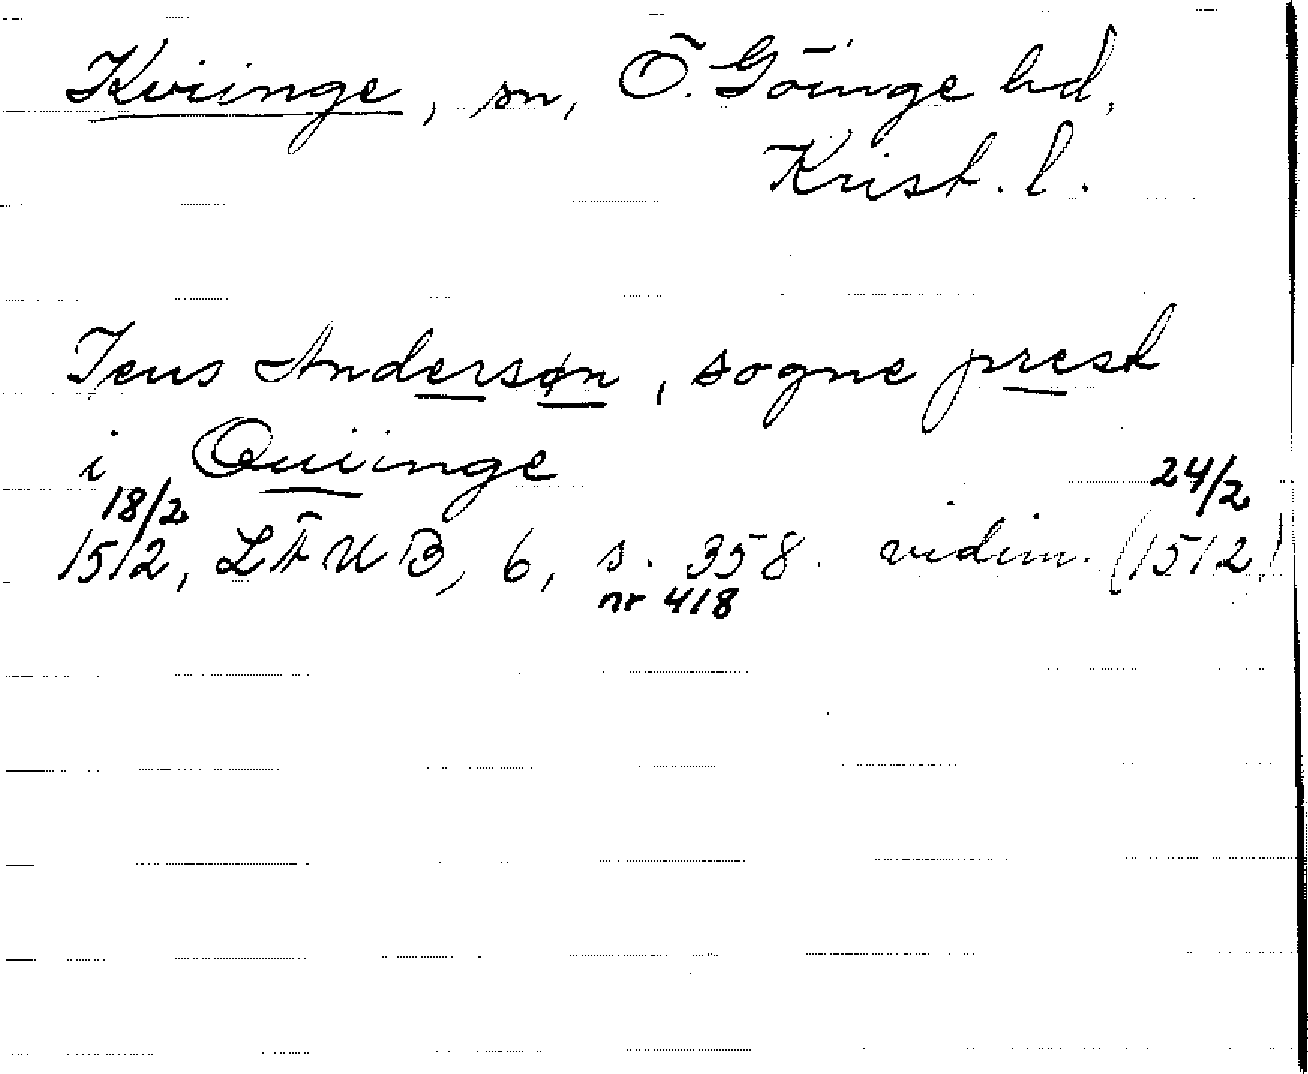 Kviinge, sn, Ö. Göinge hd,
Krist. l.
Jens Andersøn, sogne prest
i Quiinge
18/2 24/2
1512, LÄUB, 6, s. 358. vidim. (1512)
nr 418